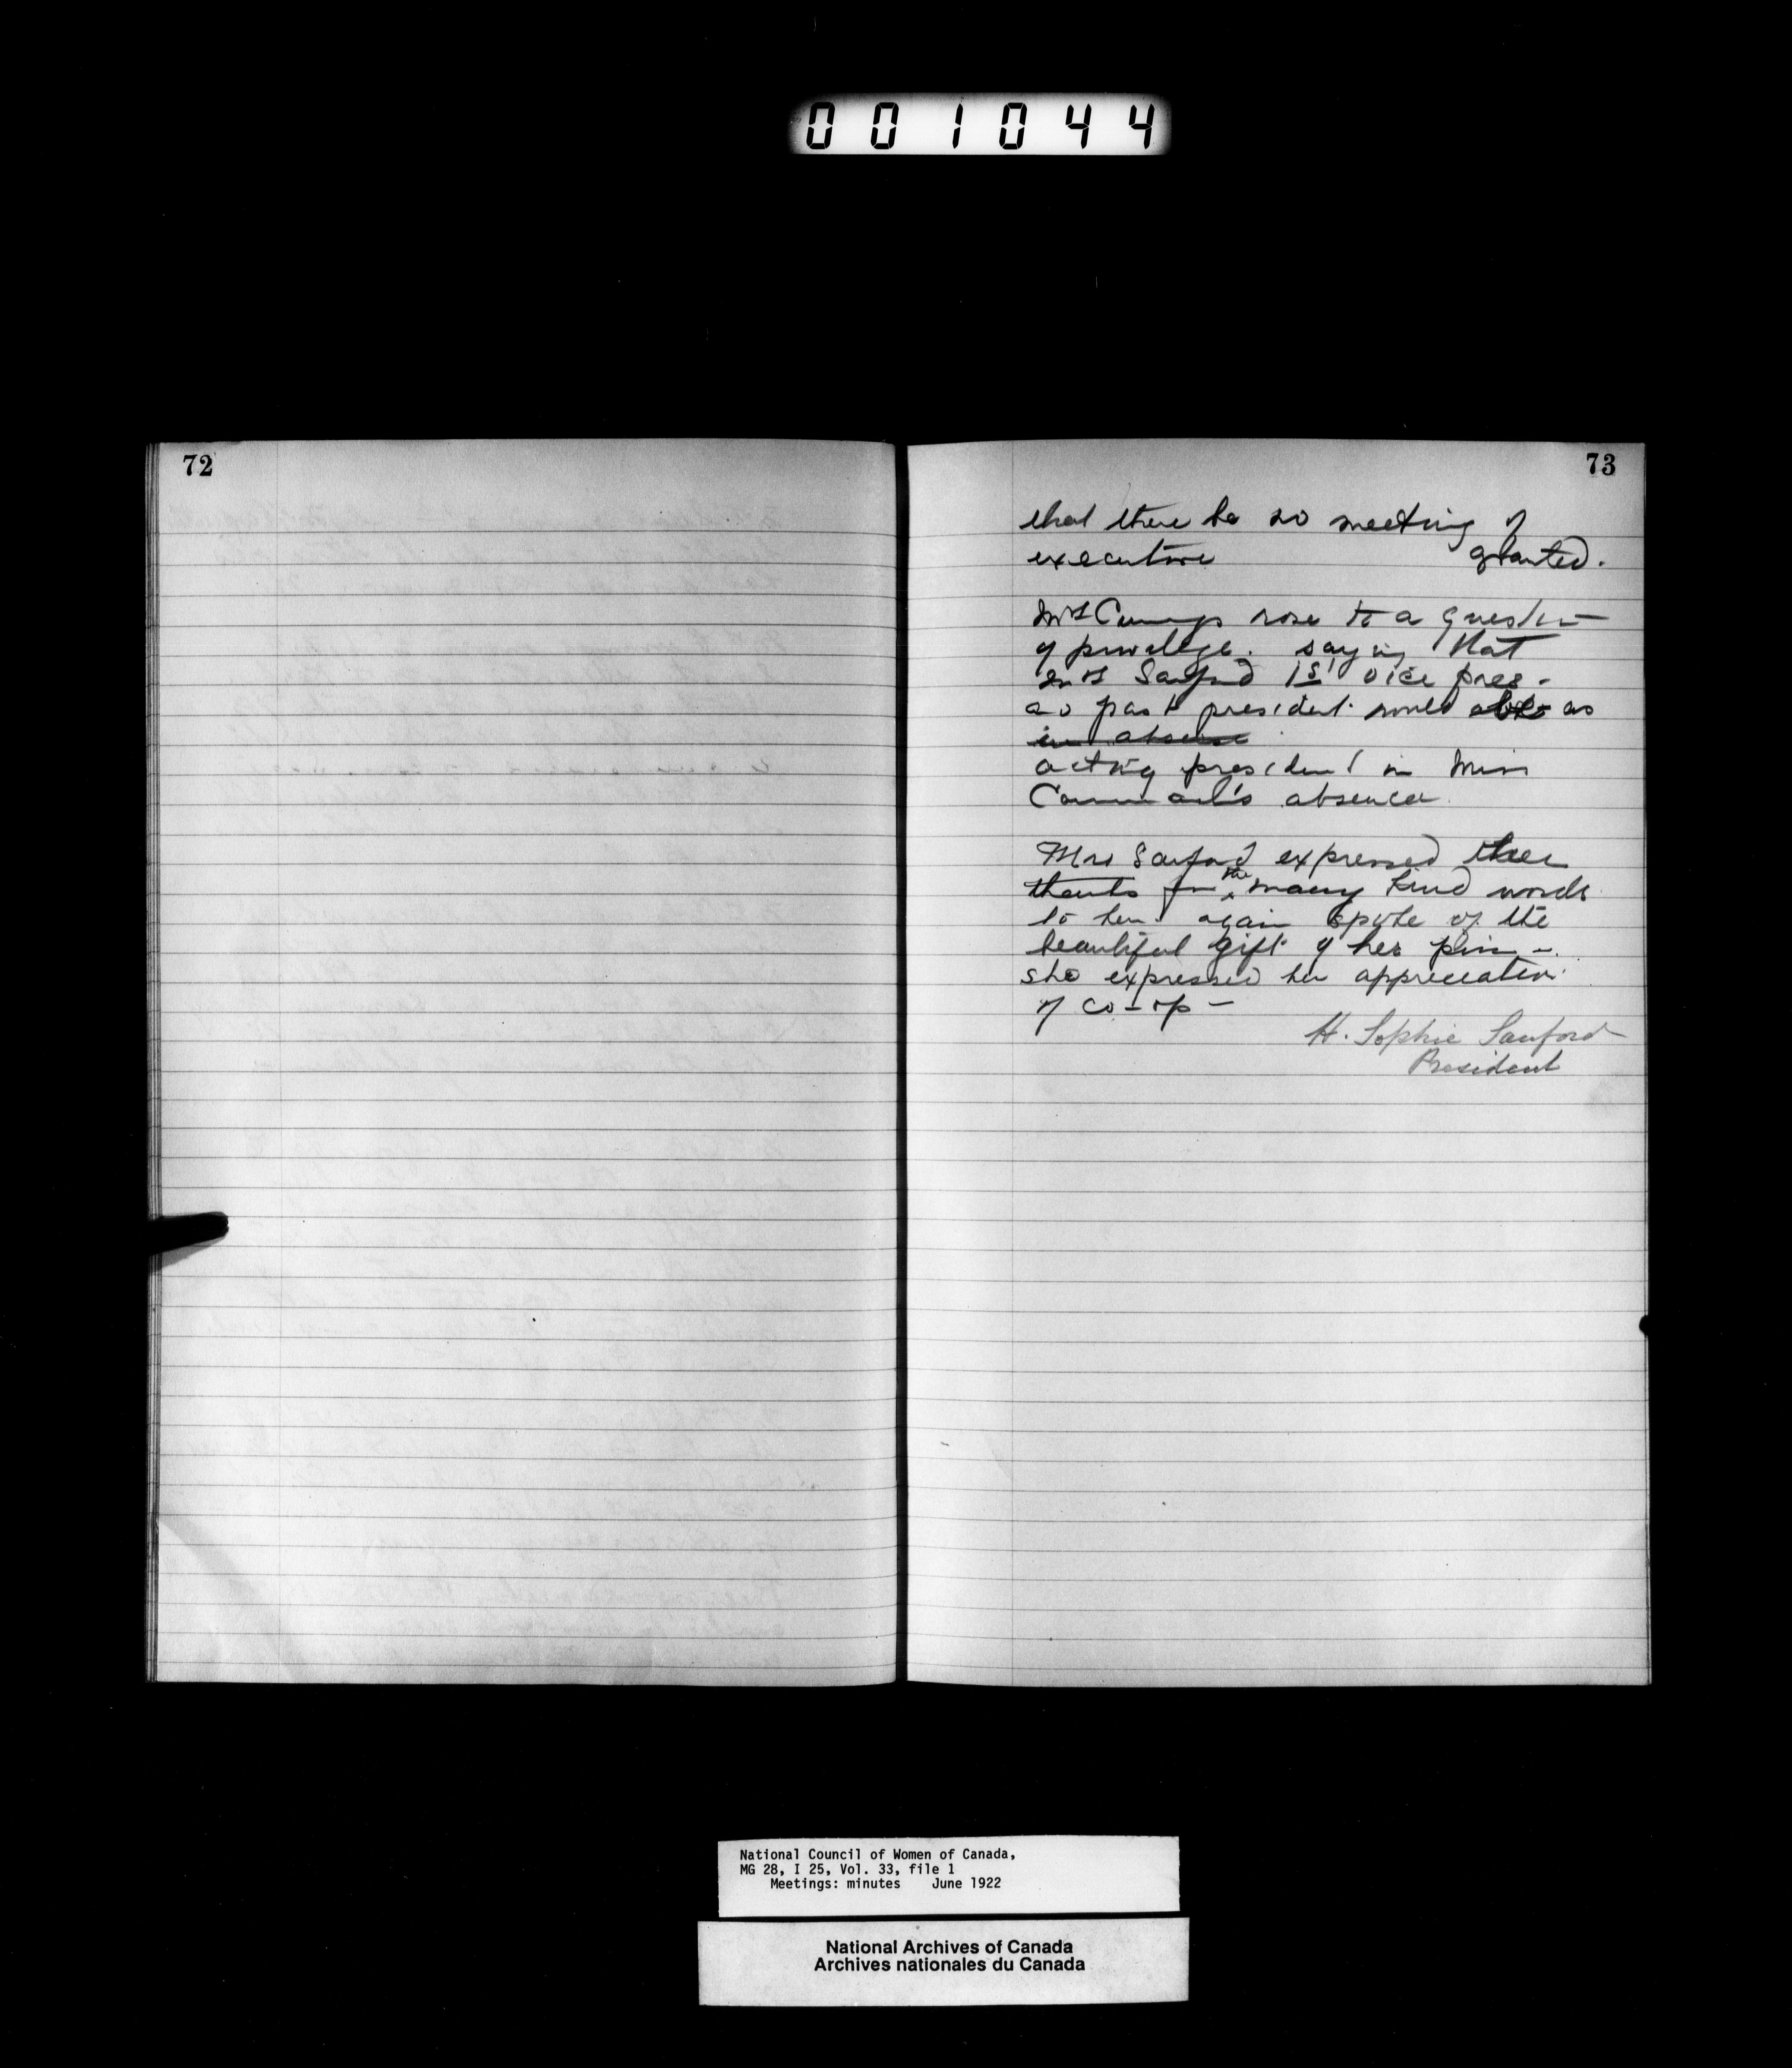 001044
72
73
that there be no meeting of
executive granted.
Mrs Cummings rose to a question
of privilege. saying that
Mrs Sanford 1st vice pres -
as past president would as
in absence
acting president in Miss
Carmichael's absence.
Mrs Sanford expressed her
thanks for the many kind words
to her. again spoke of the
beautiful gift of her pin -
she expressed her appreciation
of co-op -
H. Sophie Sanford
President
National Council of Women of Canada,
MG 28, I 25, Vol. 33, file 1
Meetings: minutes June 1922
National Archives of Canada
Archives nationales du Canada